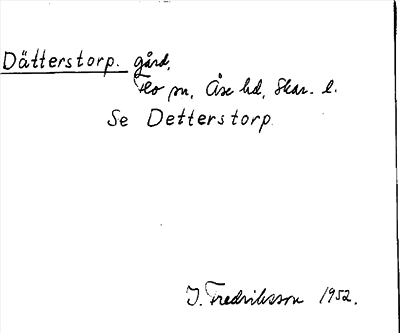 Dätterstorp. gård,
Flo sn, Åse hd, Skar. l.
Se Detterstorp.
I. Fredriksson 1952.